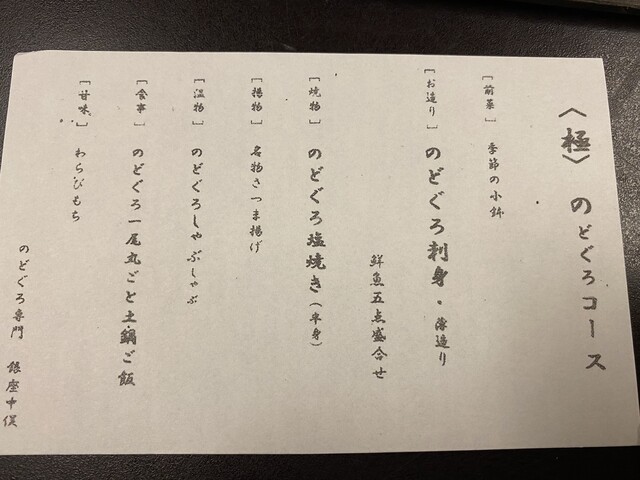 〈極〉のどぐろコース
[前菜] 季節の小鉢
[お造り] のどぐろ刺身・薄造り
鮮魚五点盛合せ
[焼物] のどぐろ塩焼き(半身)
[揚物] 名物さつま揚げ
[温物] のどぐろしゃぶしゃぶ
[食事] のどぐろ一尾丸ごと土鍋ご飯
[甘味] わらびもち
のどぐろ専門 銀座中俣